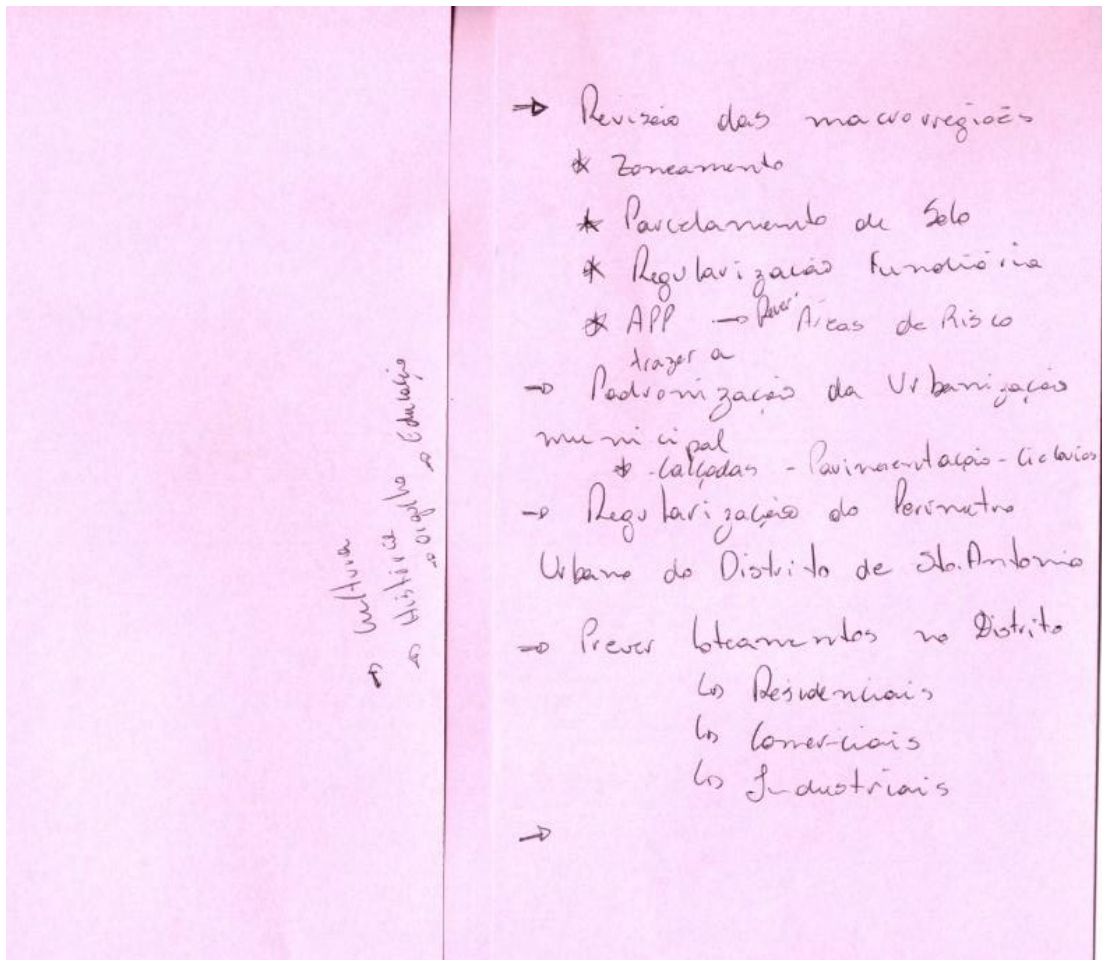 → Cultura
→ História
→ Orgulho → Educação
→ Revisão das macrorregiões
* Zoneamento
* Parcelamento de Solo
* Regularização Fundiária
* APP → Rever Áreas de Risco
trazer a
→ Padronização da Urbanização
municipal
* - Calçadas - Pavimentação - Ciclovias
→ Regularização do Perímetro
Urbano do Distrito de Sto. Antonio
→ Prever loteamentos no Distrito
↳ Residenciais
↳ Comerciais
↳ Industriais
→